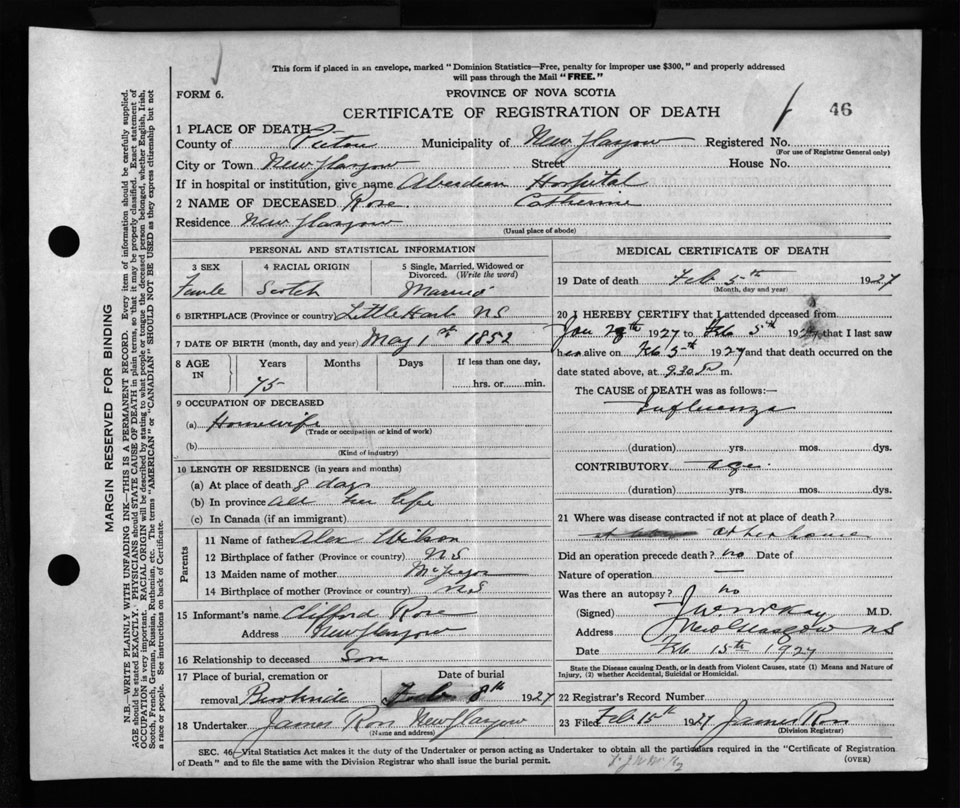 This form if placed in an envelope, marked "Dominion Statistics—Free, penalty for improper use $300," and properly addressed
will pass through the Mail "FREE."
FORM 6.
PROVINCE OF NOVA SCOTIA
CERTIFICATE OF REGISTRATION OF DEATH
46
1 PLACE OF DEATH—
County of Pictou Municipality of New Glasgow Registered No.
(For use of Registrar General only)
City or Town New Glasgow Street House No.
If in hospital or institution, give name Aberdeen Hospital
2 NAME OF DECEASED Rose. Catherine
Residence New Glasgow
(Usual place of abode)
PERSONAL AND STATISTICAL INFORMATION
3 SEX 4 RACIAL ORIGIN 5 Single, Married, Widowed or
Divorced. (Write the word)
Scotch Married
6 BIRTHPLACE (Province or country) Little Harb NS
7 DATE OF BIRTH (month, day and year) May 1st 1852
8 AGE IN Years Months Days If less than one day,
75 hrs. or min.
9 OCCUPATION OF DECEASED
(a) Housewife
(Trade or occupation or kind of work)
(b)
(Kind of industry)
10 LENGTH OF RESIDENCE (in years and months)
(a) At place of death 8 days
(b) In province all her life
(c) In Canada (if an immigrant)
Parents
11 Name of father Alex Wilson
12 Birthplace of father (Province or country) NS
13 Maiden name of mother McGregor
14 Birthplace of mother (Province or country) NS
15 Informant's name Clifford Rose
Address New Glasgow
16 Relationship to deceased Son
17 Place of burial, cremation or Date of burial
removal Feb 8th 1927
18 Undertaker James Ross New Glasgow
(Name and address)
MEDICAL CERTIFICATE OF DEATH
19 Date of death Feb 5th 1927
(Month, day and year)
20 I HEREBY CERTIFY that I attended deceased from
Jan 29th 1927 to Feb 5th 1927, that I last saw
her alive on Feb 5th 1927 and that death occurred on the
date stated above, at 9.30 P m.
The CAUSE of DEATH was as follows:—
Influenza
(duration) yrs. mos. dys.
CONTRIBUTORY age.
(duration) yrs. mos. dys.
21 Where was disease contracted if not at place of death?
at her house
Did an operation precede death? no Date of
Nature of operation —
Was there an autopsy? no
(Signed) M.D.
Address New Glasgow NS
Date Feb 15th 1927
State the Disease causing Death, or in death from Violent Causes, state (1) Means and Nature of
Injury, (2) whether Accidental, Suicidal or Homicidal.
22 Registrar's Record Number
23 Filed Feb 15th 1927 James Ross
(Division Registrar)
SEC. 46—Vital Statistics Act makes it the duty of the Undertaker or person acting as Undertaker to obtain all the particulars required in the "Certificate of Registration
of Death" and to file the same with the Division Registrar who shall issue the burial permit. (OVER)
MARGIN RESERVED FOR BINDING
N.B.—WRITE PLAINLY WITH UNFADING INK—THIS IS A PERMANENT RECORD. Every item of information should be carefully supplied.
AGE should be stated EXACTLY. PHYSICIANS should STATE CAUSE OF DEATH in plain terms, so that it may be properly classified. Exact statement of
OCCUPATION is very important. RACIAL ORIGIN will be described by stating to what people or tongue the deceased person belonged, whether English, Irish,
Scotch, French, German, Russian, Ruthenian, etc. The terms "AMERICAN" or "CANADIAN" SHOULD NOT BE USED as they express citizenship but not
a race or people. See instructions on back of Certificate.